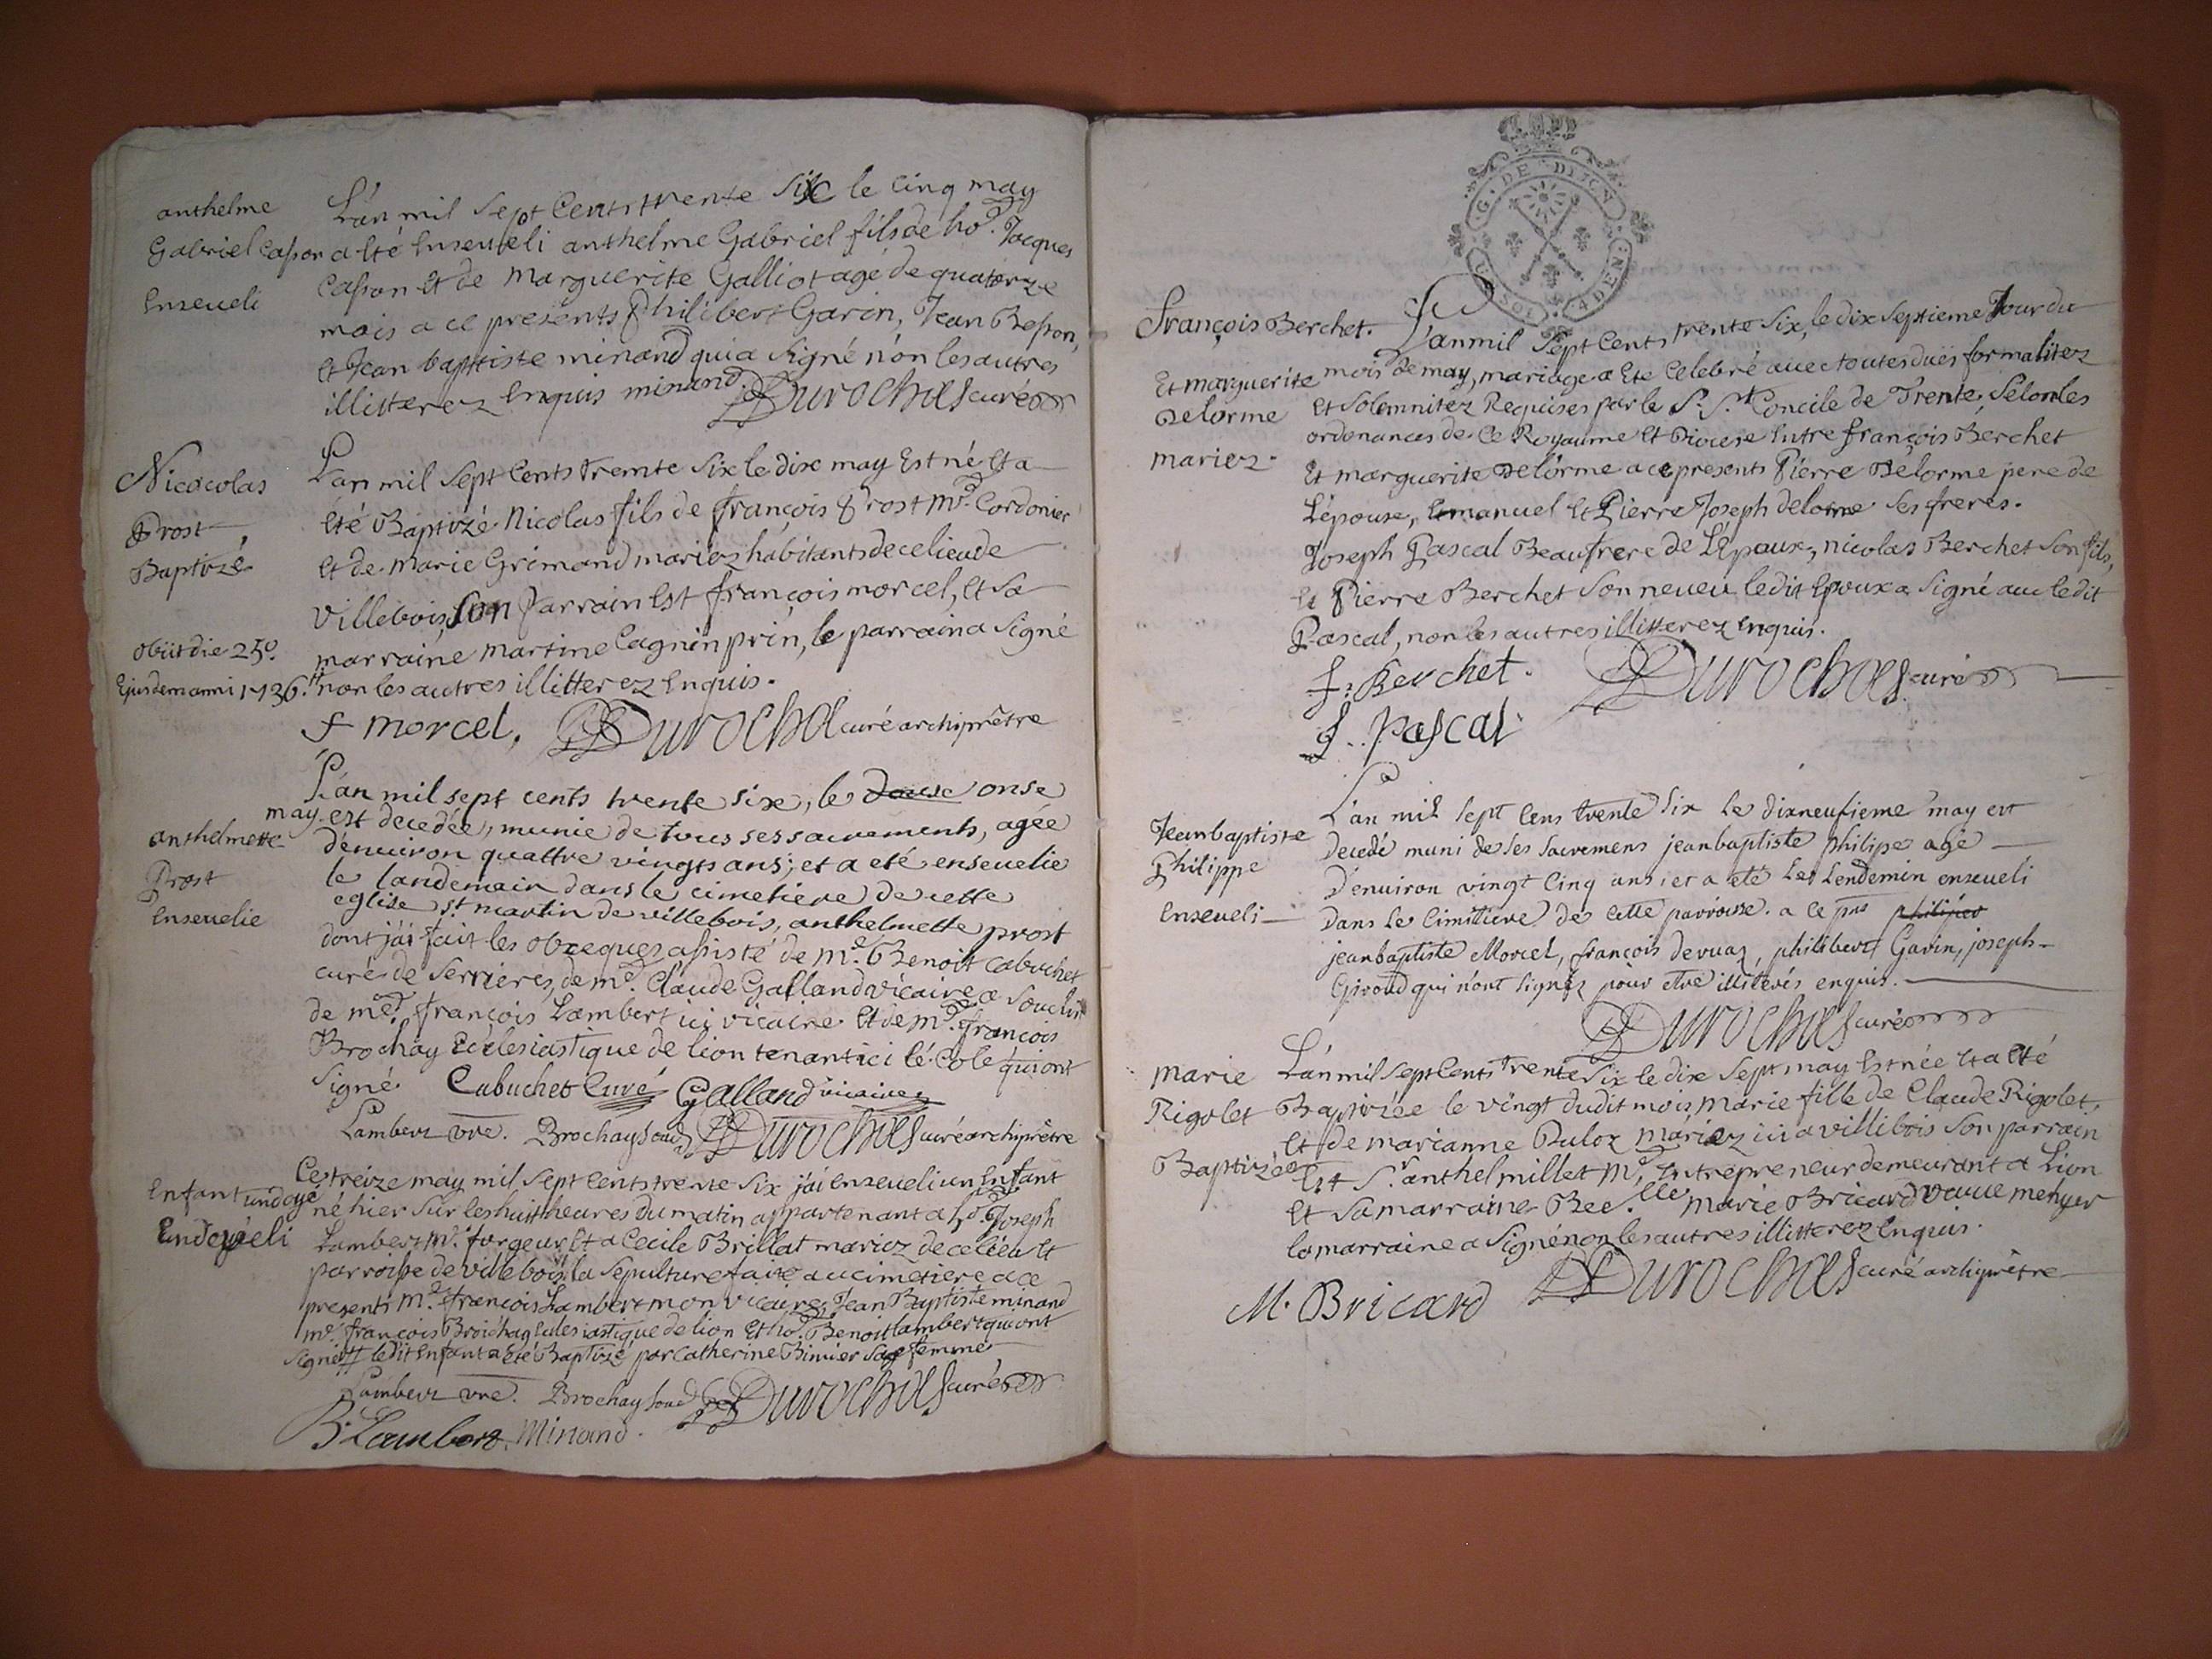 anthelme
Gabriel Casson
Enseueli
L'an mil Sept Cents trente Six le cinq may
a Eté Enseueli anthelme Gabriel fils de ho. Jacques
Casson Et de Marguerite Galliot agé de quatorze
mois a ce presents Philibert Garin, Jean Besson,
Et Jean baptiste minand qui a Signé non les autres
illitterez Enquis minand. DuRochat curé
Nicocolas
Prost
Baptizé
obiit die 25º.
Ejusdem anni 1736.
L'an mil Sept Cents tremte Six le dix may Est né Et a
Eté Baptizé Nicolas fils de françois Prost me. Cordonier
Et de Marie Grimand mariez habitants de ce lieu de
Villebois Son Parrain Est françois morcel, Et Sa
marraine Martine Cagnin prin, le parrain a Signé
non les autres illitterez Enquis.
f morcel, DuRochat curé archiprêtre
anthelmette
Prost
Enseuelie
L'an mil sept cents trente six, le douse onse
may est decedée, munie de tous ses sacrements, agée
d'enuiron quattre vingts ans; et a eté enseuelie
le landemain dans le cimetiere de cette
eglise st. martin de villebois, anthelmette prost
dont j'ai fait les obseques assisté de me. Benoit Cabuchet
curé de Serrieres, de me. Claude Galland vicaire a Souclin
de me. françois Lambert ici vicaire Et de me. françois
Brochay Ecclesiastique de lion tenant ici l'école qui ont
Signé Cabuchet Curé Galland vicaire
Lambert vre. Brochay soud DuRochat curé archiprêtre
Enfant undoyé
Endoyéeli
Ce treize may mil Sept Cents trente Six j'ai Enseueli un Enfant
né hier Sur les huit heures du matin appartenant a ho. Joseph
Lambert me. forgeur Et a Cecile Brillat mariez de ce lieu Et
parroisse de villebois, la Sepulture faite au cimetiere a ce
presents me. françois Lambert mon vicaire, Jean Baptiste minand
me. françois Broichay Eclesiastique de lion Et ho. Benoit lambert qui ont
Signé ledit Enfant a Eté Baptizé par Catherine Binier Sage femme
Lambert vre. Brochay soud DuRochat curé
B. Lambert. Minand.
G. DE DIJON
françois Berchet.
Et marguerite
Delorme
mariez.
L'an mil Sept Cents trente Six, le dix Septieme Jour du
mois de may, mariage a Eté Celebré auec toutes dües formalitez
Et Solemnitez Requises par le S. St. Concile de Trente, Selon les
ordonances de ce Royaume Et Diocese Entre françois Berchet
Et marguerite Delorme a ce presents Pierre Delorme pere de
L'épouse, Emanuel Et Pierre Joseph delorme Ses freres.
Joseph Pascal Beaufrere de L'Epoux, nicolas Berchet Son fils,
Et Pierre Berchet Son neueu ledit Epoux a Signé auec ledit
Pascal, non les autres illitterez Enquis.
f. Berchet. DuRochat curé
J. Pascal
Jean baptiste
Philippe
Enseueli
L'an mil sept Cens trente Six Le dixneufieme may est
decedé muni de ses Sacremens jean baptiste philipe agé
d'enuiron vingt Cinq ans; et a eté Le Lendemin enseueli
dans Le Cimitiere de Cette parroisse. a ce pns philiper
jean baptiste Morcel, françois deruaz, philibert Garin, joseph
Giroud qui n'ont Signéz pour etre illiterés enquis.
DuRochat curé
Marie
Rigolet
Baptizée
L'an mil Sept Cents trente Six le dix Sept may Est née Et a Eté
Baptizée le vingt dudit mois Marie fille de Claude Rigolet,
Et de marianne Duloz mariez ici a villibois Son parrain
Est Sr. anthel millet Me, Entrepreneur demeurant a Lion
Et Sa marraine Dee.lle Marie Bricard veuue
la marraine a Signé non les autres illitterez Enquis.
M. Bricard DuRochat curé archiprêtre